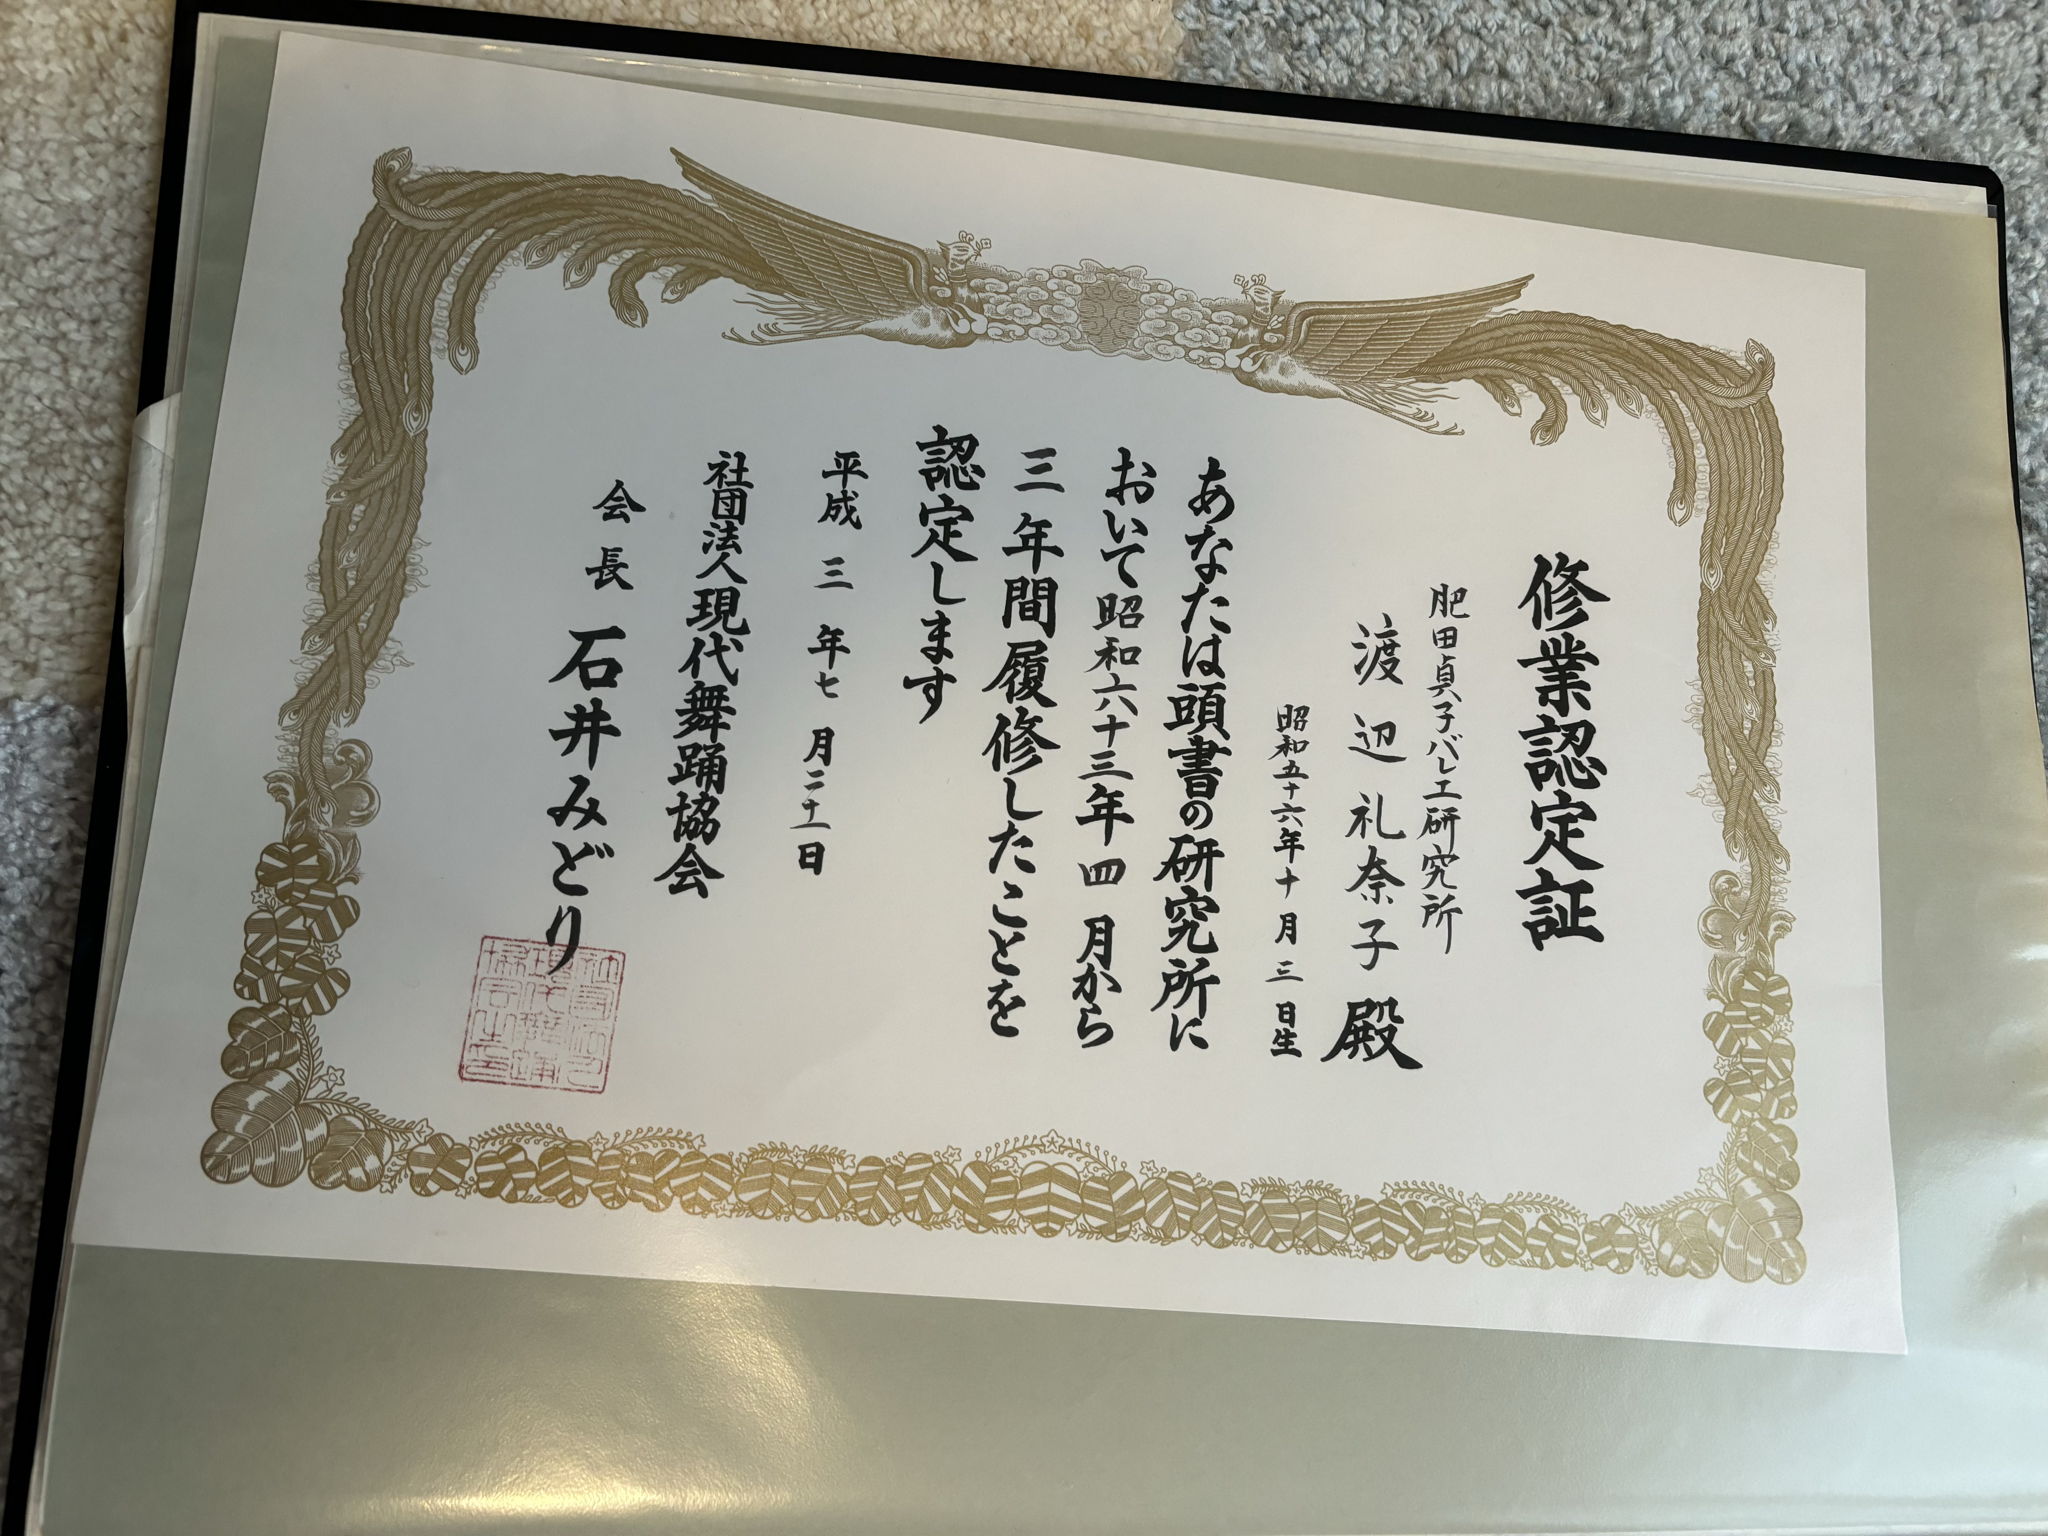 修業認定証
肥田貞子バレエ研究所
渡辺礼奈子殿
昭和五十六年十月三日生
あなたは頭書の研究所に
おいて昭和六十三年四月から
三年間履修したことを
認定します
平成三年七月二十一日
社団法人現代舞踊協会
会長 石井みどり